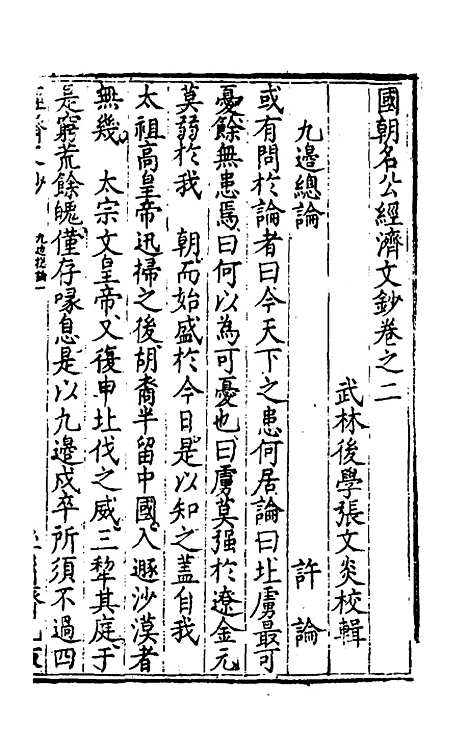 國朝名公經濟文鈔卷之二
武林後學張文炎校輯
九邊總論 許論
或有問於論者曰今天下之患何居論曰北虜最可
憂餘無患焉曰何以為可憂也曰虜莫强於遼金元
莫弱於我 朝而始盛於今日是以知之蓋自我
太祖高皇帝迅掃之後胡裔半留中國入遯沙漠者
無幾 太宗文皇帝又復申北伐之威三犂其庭于
是窮荒餘魄僅存喙息是以九邊戍卒所須不過四
九邊總論